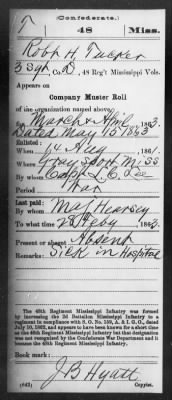 (Confederate.)
T 48 Miss.
Robt H. Tucker
3 Sgt, Co. D, 48 Reg't Mississippi Vols.
Appears on
Company Muster Roll
of the organization named above,
for March & April, 1863.
Dated May 15 1863
Enlisted:
When Aug, 1861.
Where Grayson Port Miss
By whom Capt L. C.
Period War
Last paid:
By whom Maj Hearsey
To what time 28 Feby, 1863.
Present or absent Absent
Remarks: Sick in Hospital
The 48th Regiment Mississippi Infantry was formed
by increasing the 2d Battalion Mississippi Infantry to a
regiment in compliance with S. O. No. 159, A. & I. G. O., dated
July 10, 1862, and appears to have been known for a short time
as the 47th Regiment Mississippi Infantry but that designation
was not recognized by the Confederate War Department and it
became the 48th Regiment Mississippi Infantry.
Book mark:
J B Hyatt
(642) Copyist.